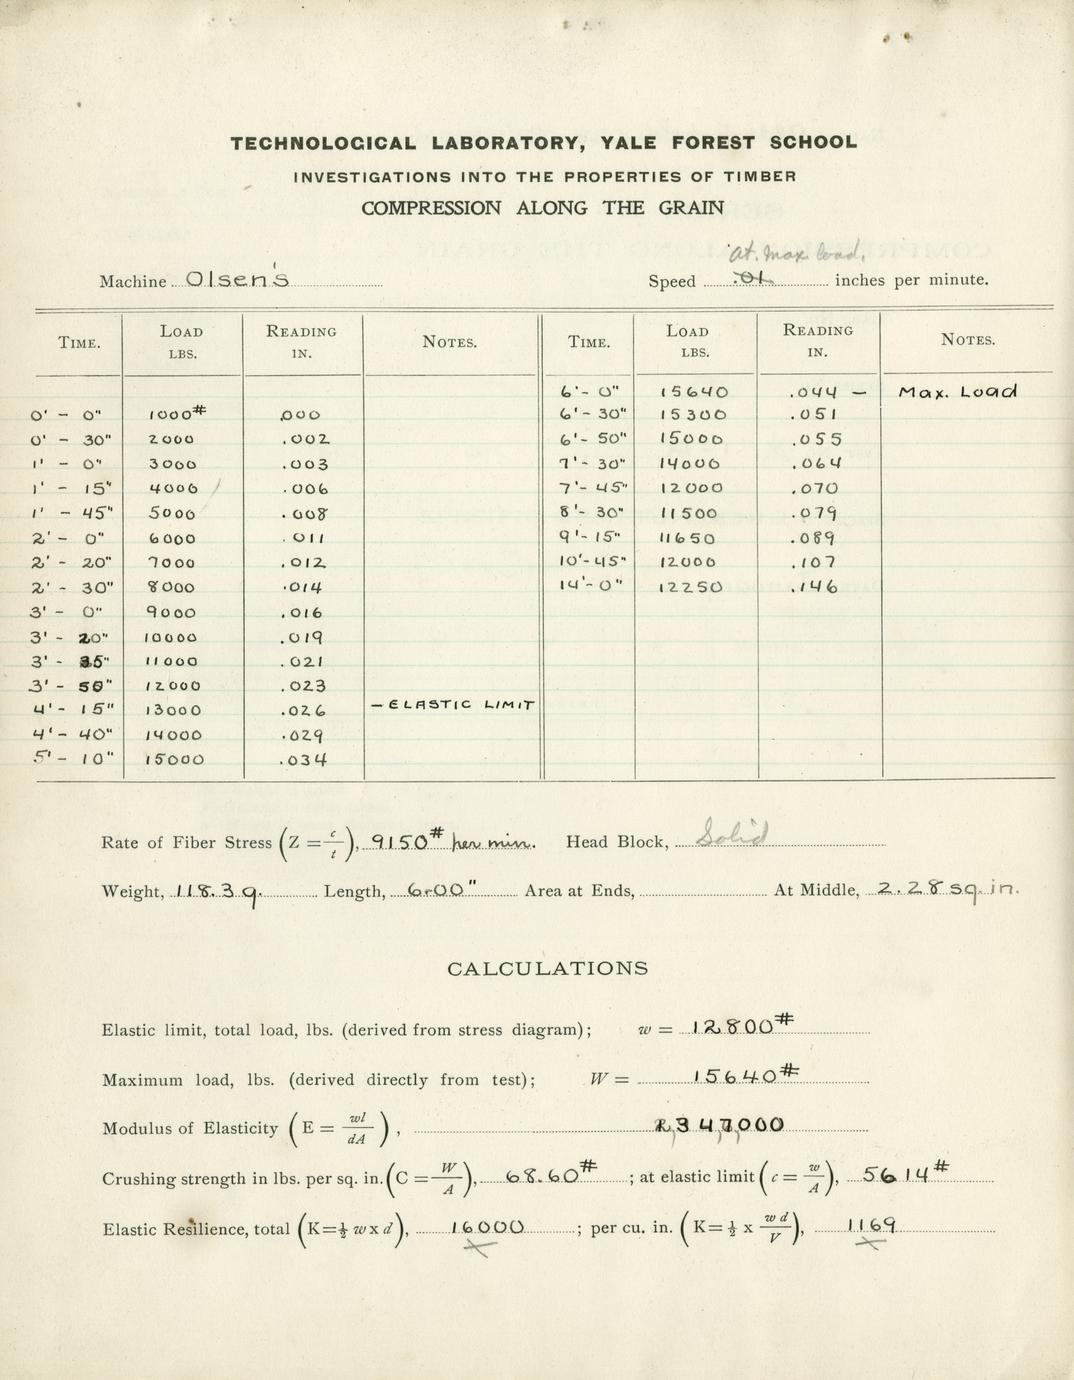 TECHNOLOGICAL LABORATORY, YALE FOREST SCHOOL
INVESTIGATIONS INTO THE PROPERTIES OF TIMBER
COMPRESSION ALONG THE GRAIN
at. max load.
Machine Olsen's Speed .01 inches per minute.
TIME. LOAD LBS. READING IN. NOTES. TIME. LOAD LBS. READING IN. NOTES.
6'- 0" 15640 .044 — Max. Load
0' - 0" 1000# .000 6'- 30" 15300 .051
0' - 30" 2000 .002 6'- 50" 15000 .055
1' - 0" 3000 .003 7'- 30" 14000 .064
1' - 15" 4000 .006 7'- 45" 12000 .070
1' - 45" 5000 .008 8'- 30" 11500 .079
2' - 0" 6000 .011 9'- 15" 11650 .089
2' - 20" 7000 .012 10'- 45" 12000 .107
2' - 30" 8000 .014 14'- 0" 12250 .146
3' - 0" 9000 .016
3' - 20" 10000 .019
3' - 35" 11000 .021
3' - 50" 12000 .023
4' - 15" 13000 .026 — ELASTIC LIMIT
4' - 40" 14000 .029
5' - 10" 15000 .034
Rate of Fiber Stress (Z = c/t), 9150# per min. Head Block, Solid
Weight, 118.3 g. Length, 6.00" Area at Ends, At Middle, 2.28 sq. in.
CALCULATIONS
Elastic limit, total load, lbs. (derived from stress diagram); w = 12800#
Maximum load, lbs. (derived directly from test); W = 15640#
Modulus of Elasticity (E = wl/dA),
Crushing strength in lbs. per sq. in. (C = W/A), 68.60# ; at elastic limit (c = w/A), 5614#
Elastic Resilience, total (K=½ w x d), 16000 ; per cu. in. (K=½ x w d/V), 1169